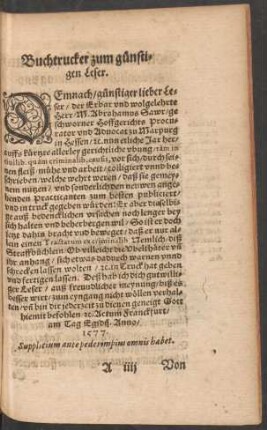 Buchtrucker zum günsti-
gen Leser.
DEmnach/günstiger lieber Le-
ser/ der Erbar vnd wolgelehrte
Herr M. Abrahamus Sawr/ ge-
schworner Hoffgerichts Procu-
rator vnd Advocat zu Marpurg
in Hessen/ ꝛc. nun etliche Jar her-
auff/ kürtze allerley gerichtliche vbung/ tàm in
ciuilib. quàm criminalib. caussis, vor sich/ durch sei-
nen fleiß/ mühe vnd arbeit/ colligiert vnnd be-
schrieben/ welche wehrt weren/ daß sie gemey-
nem nutzen/ vnd sonderlich den newen ange-
henden Practicanten zum besten publiciert/
vnd in truck gegeben würden: Er aber dieselbi-
ge auß bedencklichen vrsachen noch lenger bey
sich halten vnd beherbergen wil/ So ist er doch
letzt dahin bracht vnd beweget/ daß er nur al-
lein einen Tractatum ex criminalib. Nemlich/ diß
Straffbüchlein/ Ob villeicht die Vbelthäter
ihr anhang/ sich etwas dadurch warnen vnnd
schrecken lassen wolten/ ꝛc. in Truck hat geben
vnd fertigen lassen. Deß hab ich dich gutwilli-
ger Leser/ auß freundlicher meynung/ biß es
besser wirt/ zum eyngang nicht wöllen verhal-
ten/ vñ bin dir jederzeit zu dienen geneigt Gott
hiemit befohlen ꝛc. Actum Franckfurt/
am Tag Egidij. Anno/
1577.
Supplicium ante pedes impius omnis habet.
A iiij Von